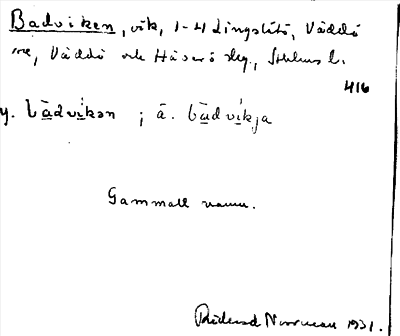 Badviken, vik, 1-4 Lingslätö, Väddö
sn, Väddö och Häverö slg., Sthlms l.
416
y. bādvikən ; ä. bādvikja
Gammalt namn.
Rickard Norrman 1931.